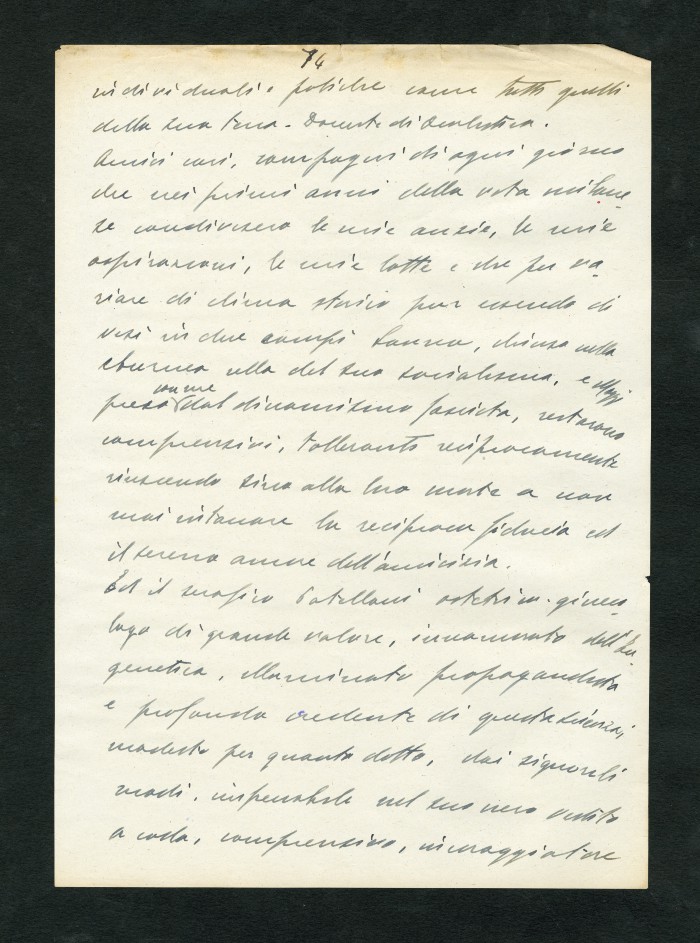 74
individuali e politiche come tutti quelli
della sua terra - Docente di Oculistica.
Amici cari, compagni di ogni giorno
che nei primi anni della vita milane-
se condivisero le mie ansie, le mie
aspirazioni, le mie lotte e che per va-
riare di clima storico pur essendo di
visi in due campi, chiuso nella
eburnea del suo socialismo, e
preso come dal dinamismo fascista, restarono
comprensivi, tolleranti reciprocamente
riuscendo sino alla loro morte a non
mai intaccare la reciproca fiducia ed
il sereno amore dell'amicizia.
Ed il serafico Patellani ostetrico-gineco-
logo di grande valore, innamorato dell'Eu-
genetica, illuminato propagandista
e profondo credente di questa scienza,
modesto per quanto dotto, dai signorili
modi, impeccabile nel suo nero vestito
a coda, comprensivo, incoraggiatore